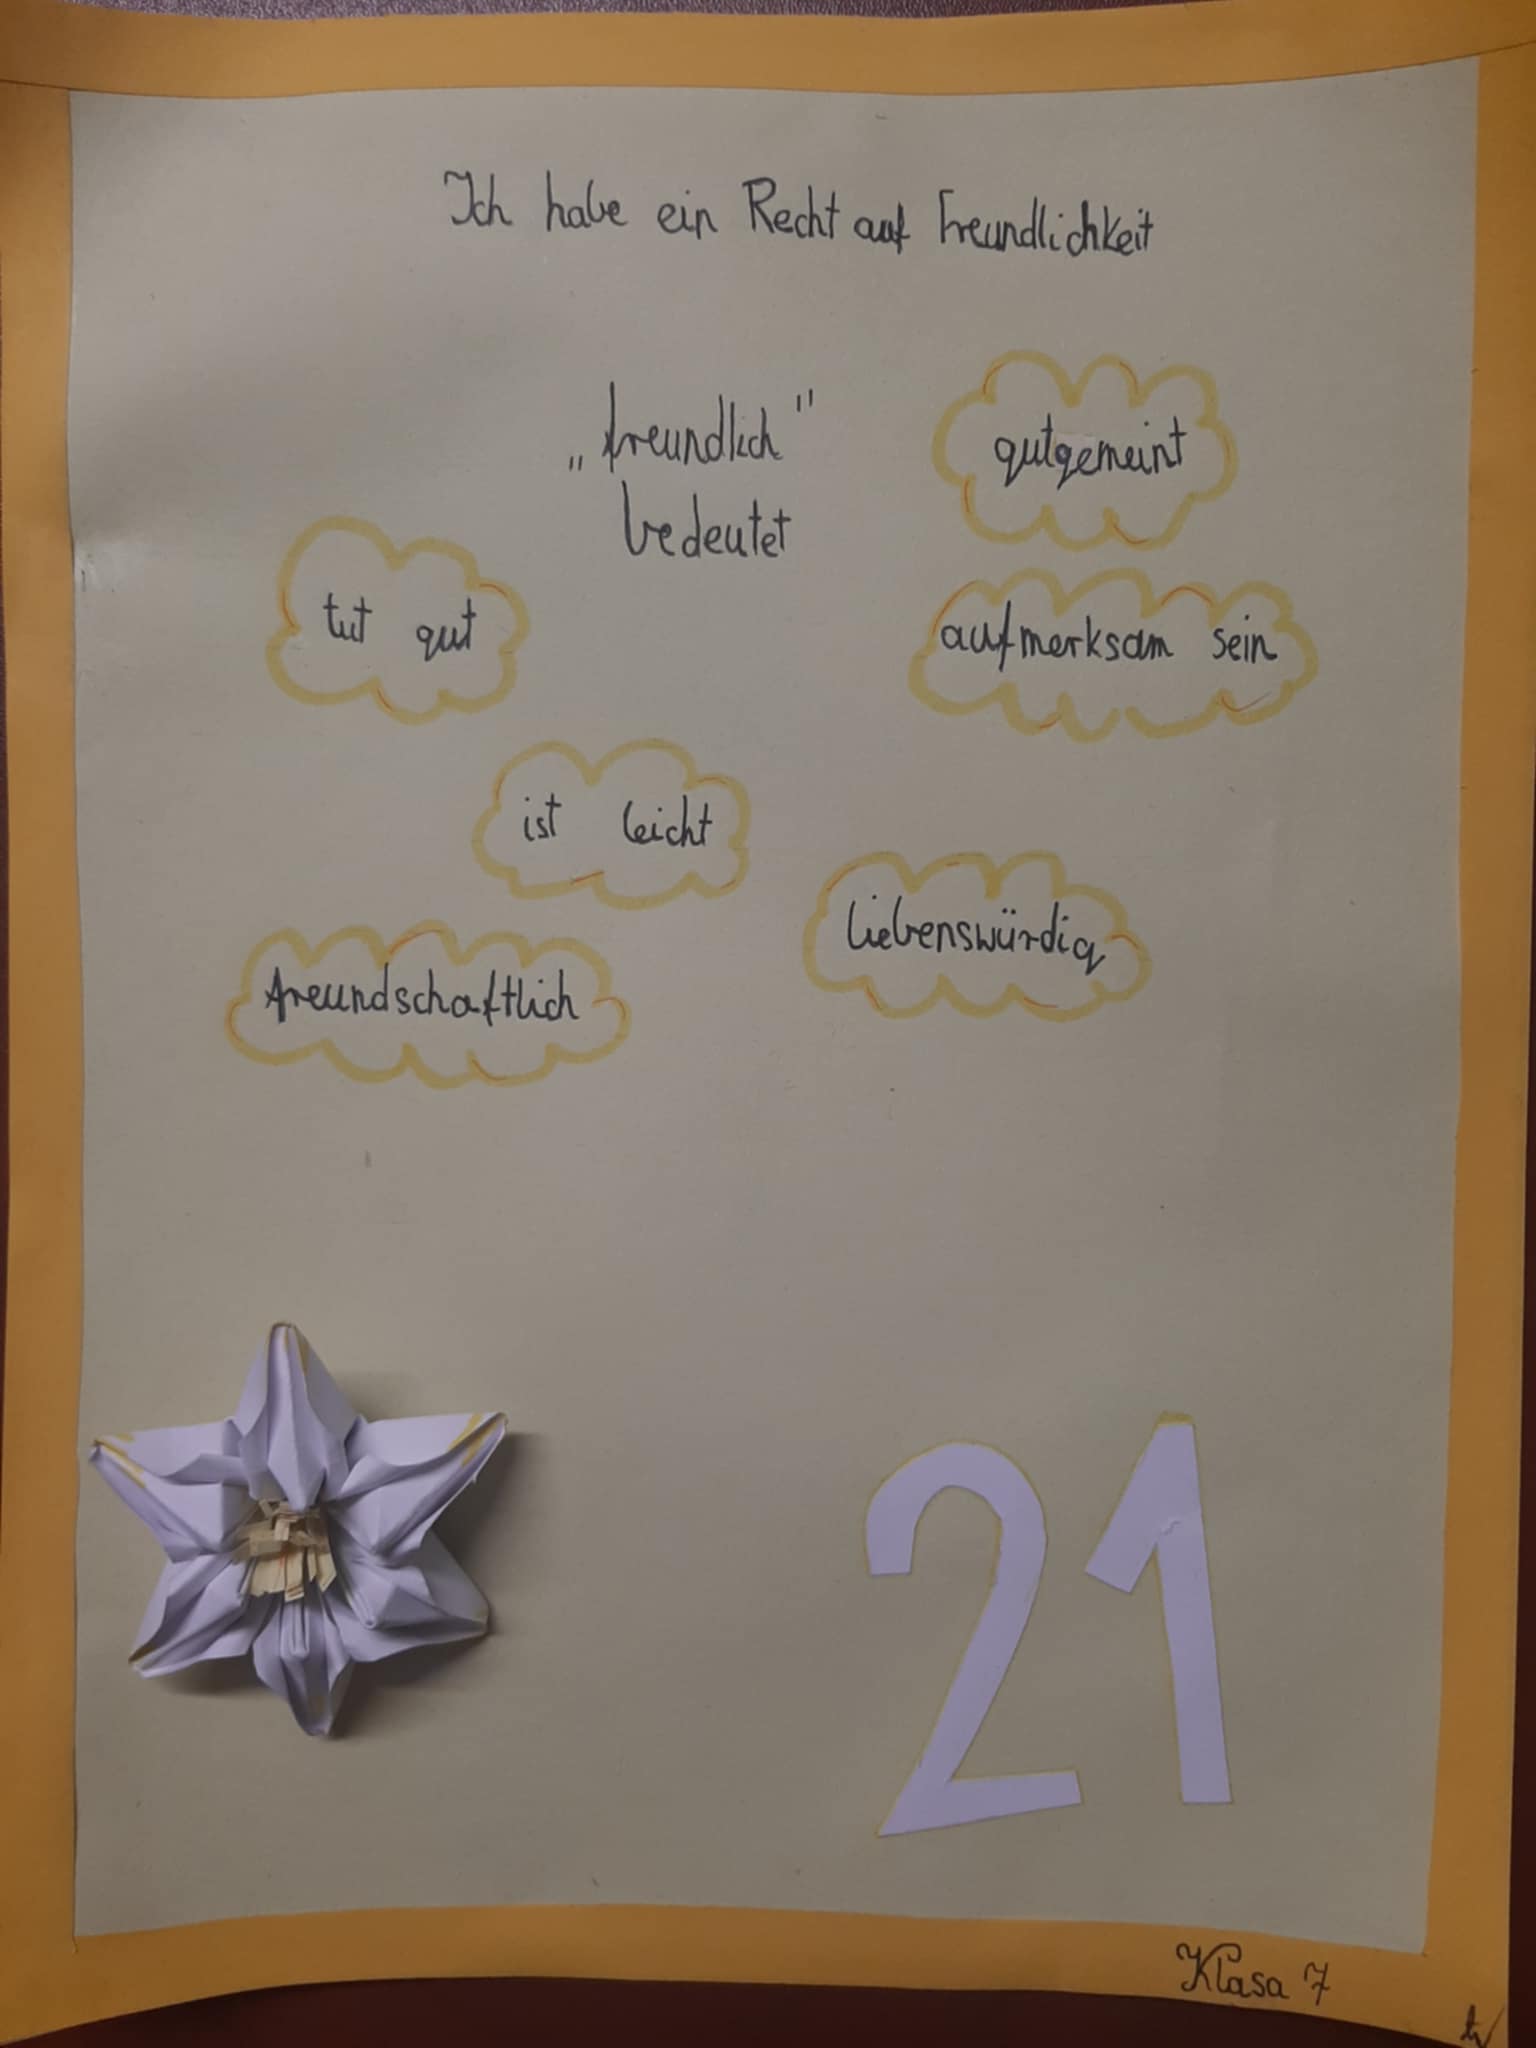 Ich habe ein Recht auf Freundlichkeit
„freundlich"
bedeutet
gutgemeint
tut gut
aufmerksam sein
ist leicht
liebenswürdig
freundschaftlich
21
Klasa 7